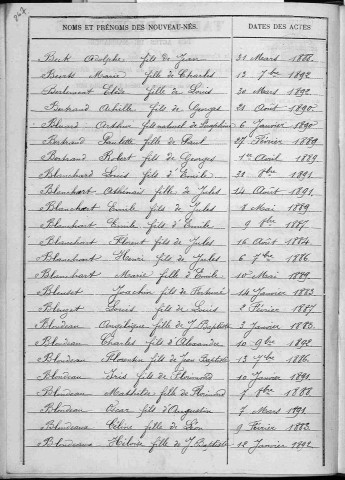 NOMS ET PRÉNOMS DES NOUVEAU-NÉS. DATES DES ACTES
Berk Adolphe fils de Jean 31 Mars 1888.
Marie fille de Charles 13 7bre 1892
Elise fille de Louis 30 Mars 1892
Bertrand Achille fils de Georges 21 Août 1890
Arthur fils naturel de 6 Janvier 1890
Bertrand Paulette fille de Paul 27 Février 1889
Bertrand Robert fils de Georges 1er Août 1889
Blanchard Louis fils d'Emile 31 8bre 1891
Blanchart fille de Jules 14 Août 1891
Blanchart Emile fils de Jules 8 Mai 1889
Blanchart Emile fils d'Emile 9 8bre 1887.
Blanchart Florent fils de Jules 16 Août 1884
Blanchart Henri fils de Jules 6 7bre 1886
Blanchart Marie fille d'Emile 10 Mai 1889
Joachim fils de 14 Janvier 1883
Louis fils de Louis 2 Février 1887
Blondeau Angélique fille de J. Baptiste 3 Janvier 1883
Blondeau Charles fils d'Alexandre 10 9bre 1892
Blondeau Florentin fils de Jean Baptiste 13 7bre 1886
Blondeau Iris fils de Florimond 10 Janvier 1891
Blondeau Mathilde fille de Florimond 7 8bre 1888
Blondeau Oscar fils d'Augustin 7 Mars 1891
Blondeaux Céline fille de Léon 9 Février 1883
Blondeaux Héloïse fille de J. Baptiste 12 Janvier 1892